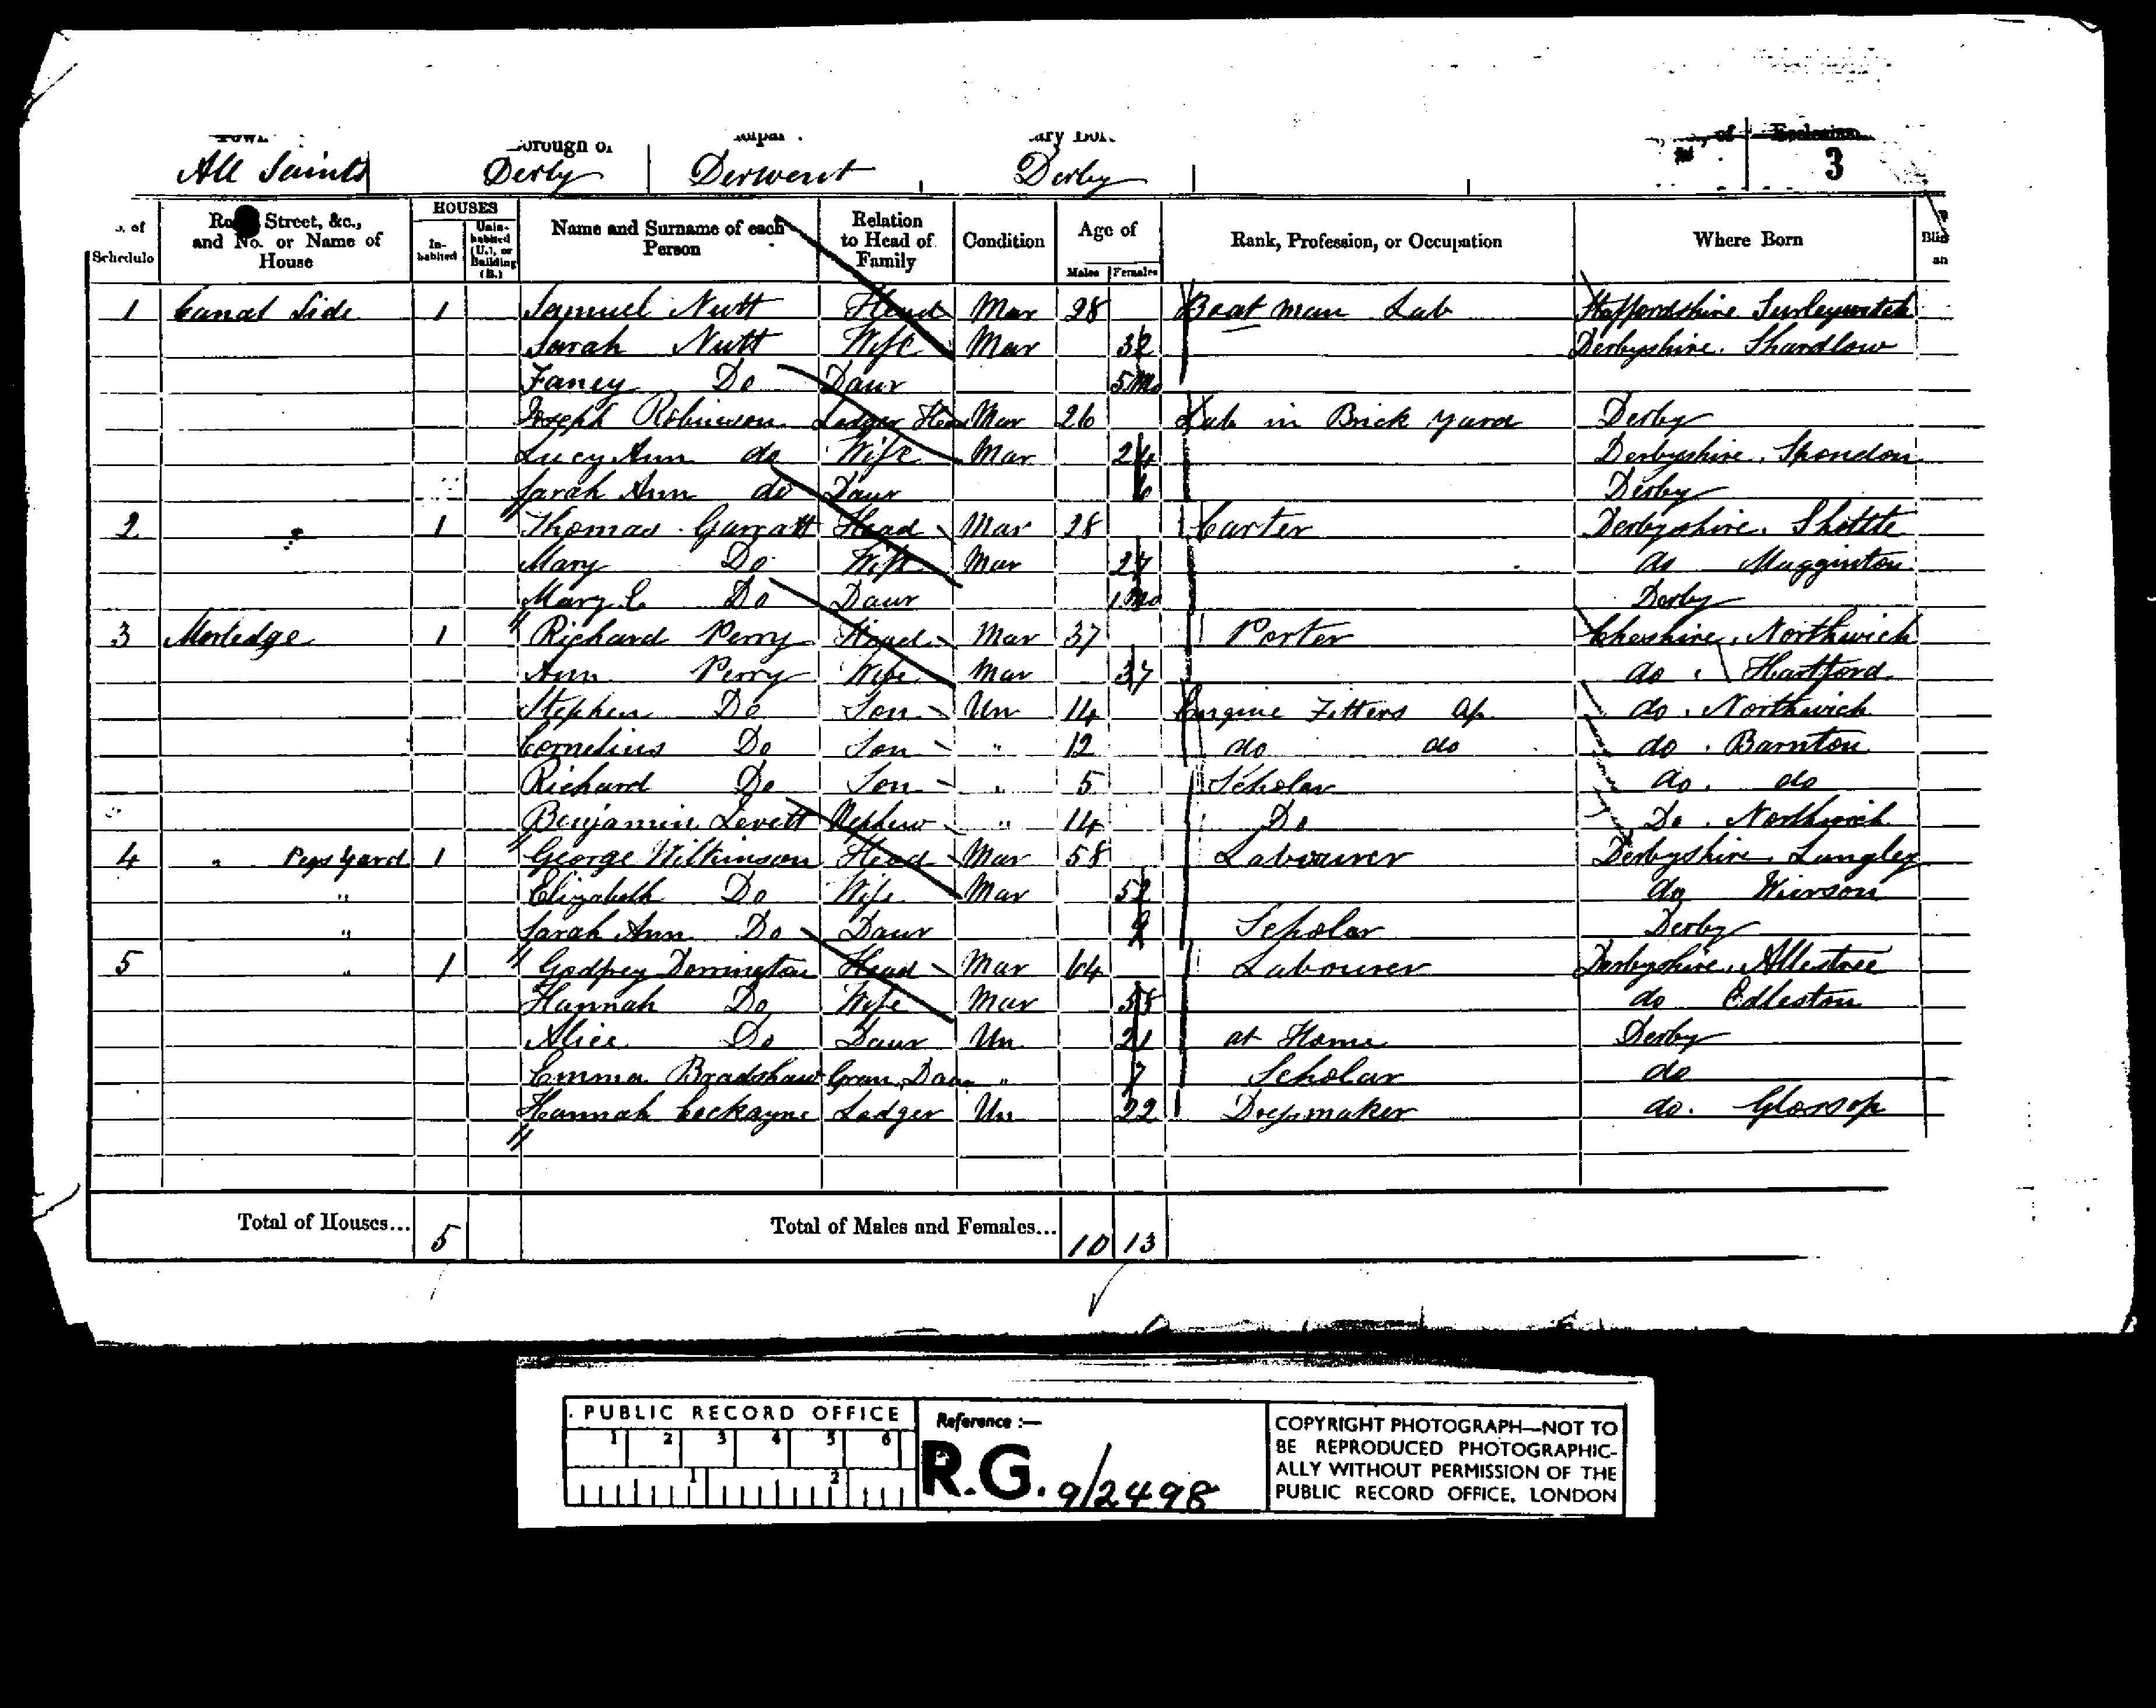 Town Borough of
All Saints Derby Derwent Derby 3
Schedule Street, &c., and No. or Name of House HOUSES Inhabited Uninhabited (U.), or Building (B.) Name and Surname of each Person Relation to Head of Family Condition Age of Males Females Rank, Profession, or Occupation Where Born
1 Canal Side 1 Samuel Nutt Head Mar 28 Boat man Lab Staffordshire
Sarah Nutt Wife Mar 32 Derbyshire. Shardlow
Faney Do Daur 5 Mo
Joseph Robinson Lodger Head Mar 26 Lab in Brick yard Derby
Lucy Ann do Wife Mar 24 Derbyshire. Spondon
Sarah Ann do Daur 6 Derby
2 " 1 Thomas Garratt Head Mar 28 Carter Derbyshire. Shottle
Mary Do Wife Mar 27 do Mugginton
Mary E Do Daur 1 Mo Derby
3 Morledge 1 Richard Perry Head Mar 37 Porter Cheshire. Northwich
Ann Perry Wife Mar 37 do. Hartford
Stephen Do Son Un 14 Engine Fitters Ap do. Northwich
Cornelius Do Son " 12 do do do. Barnton
Richard Do Son " 5 Scholar do. do
Benjamin Levett Nephew " 14 Do Do. Northwich
4 " Yard 1 George Wilkinson Head Mar 58 Labourer Derbyshire. Langley
" Elizabeth Do Wife Mar 52 do
" Sarah Ann Do Daur 9 Scholar Derby
5 " 1 Godfrey Dorrington Head Mar 64 Labourer Derbyshire. Allestree
Hannah Do Wife Mar 58 do Edleston
Alice Do Daur Un 21 at Home Derby
Emma Bradshaw Gran Daur " 7 Scholar do
Hannah Cockayne Lodger Un 22 Dressmaker do. Glossop
Total of Houses... 5 Total of Males and Females... 10 13
PUBLIC RECORD OFFICE
1 2 3 4 5 6
1 2
Reference :—
R.G. 9/2498
COPYRIGHT PHOTOGRAPH—NOT TO
BE REPRODUCED PHOTOGRAPHIC-
ALLY WITHOUT PERMISSION OF THE
PUBLIC RECORD OFFICE, LONDON